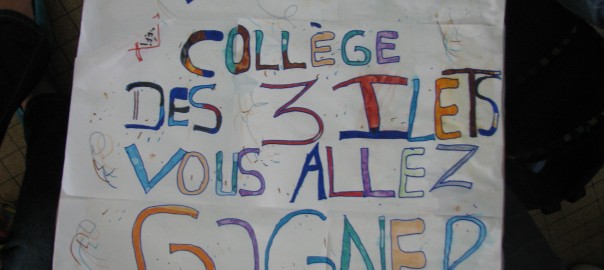 COLLÈGE
DES 3 ILETS
VOUS ALLEZ
GAGNER